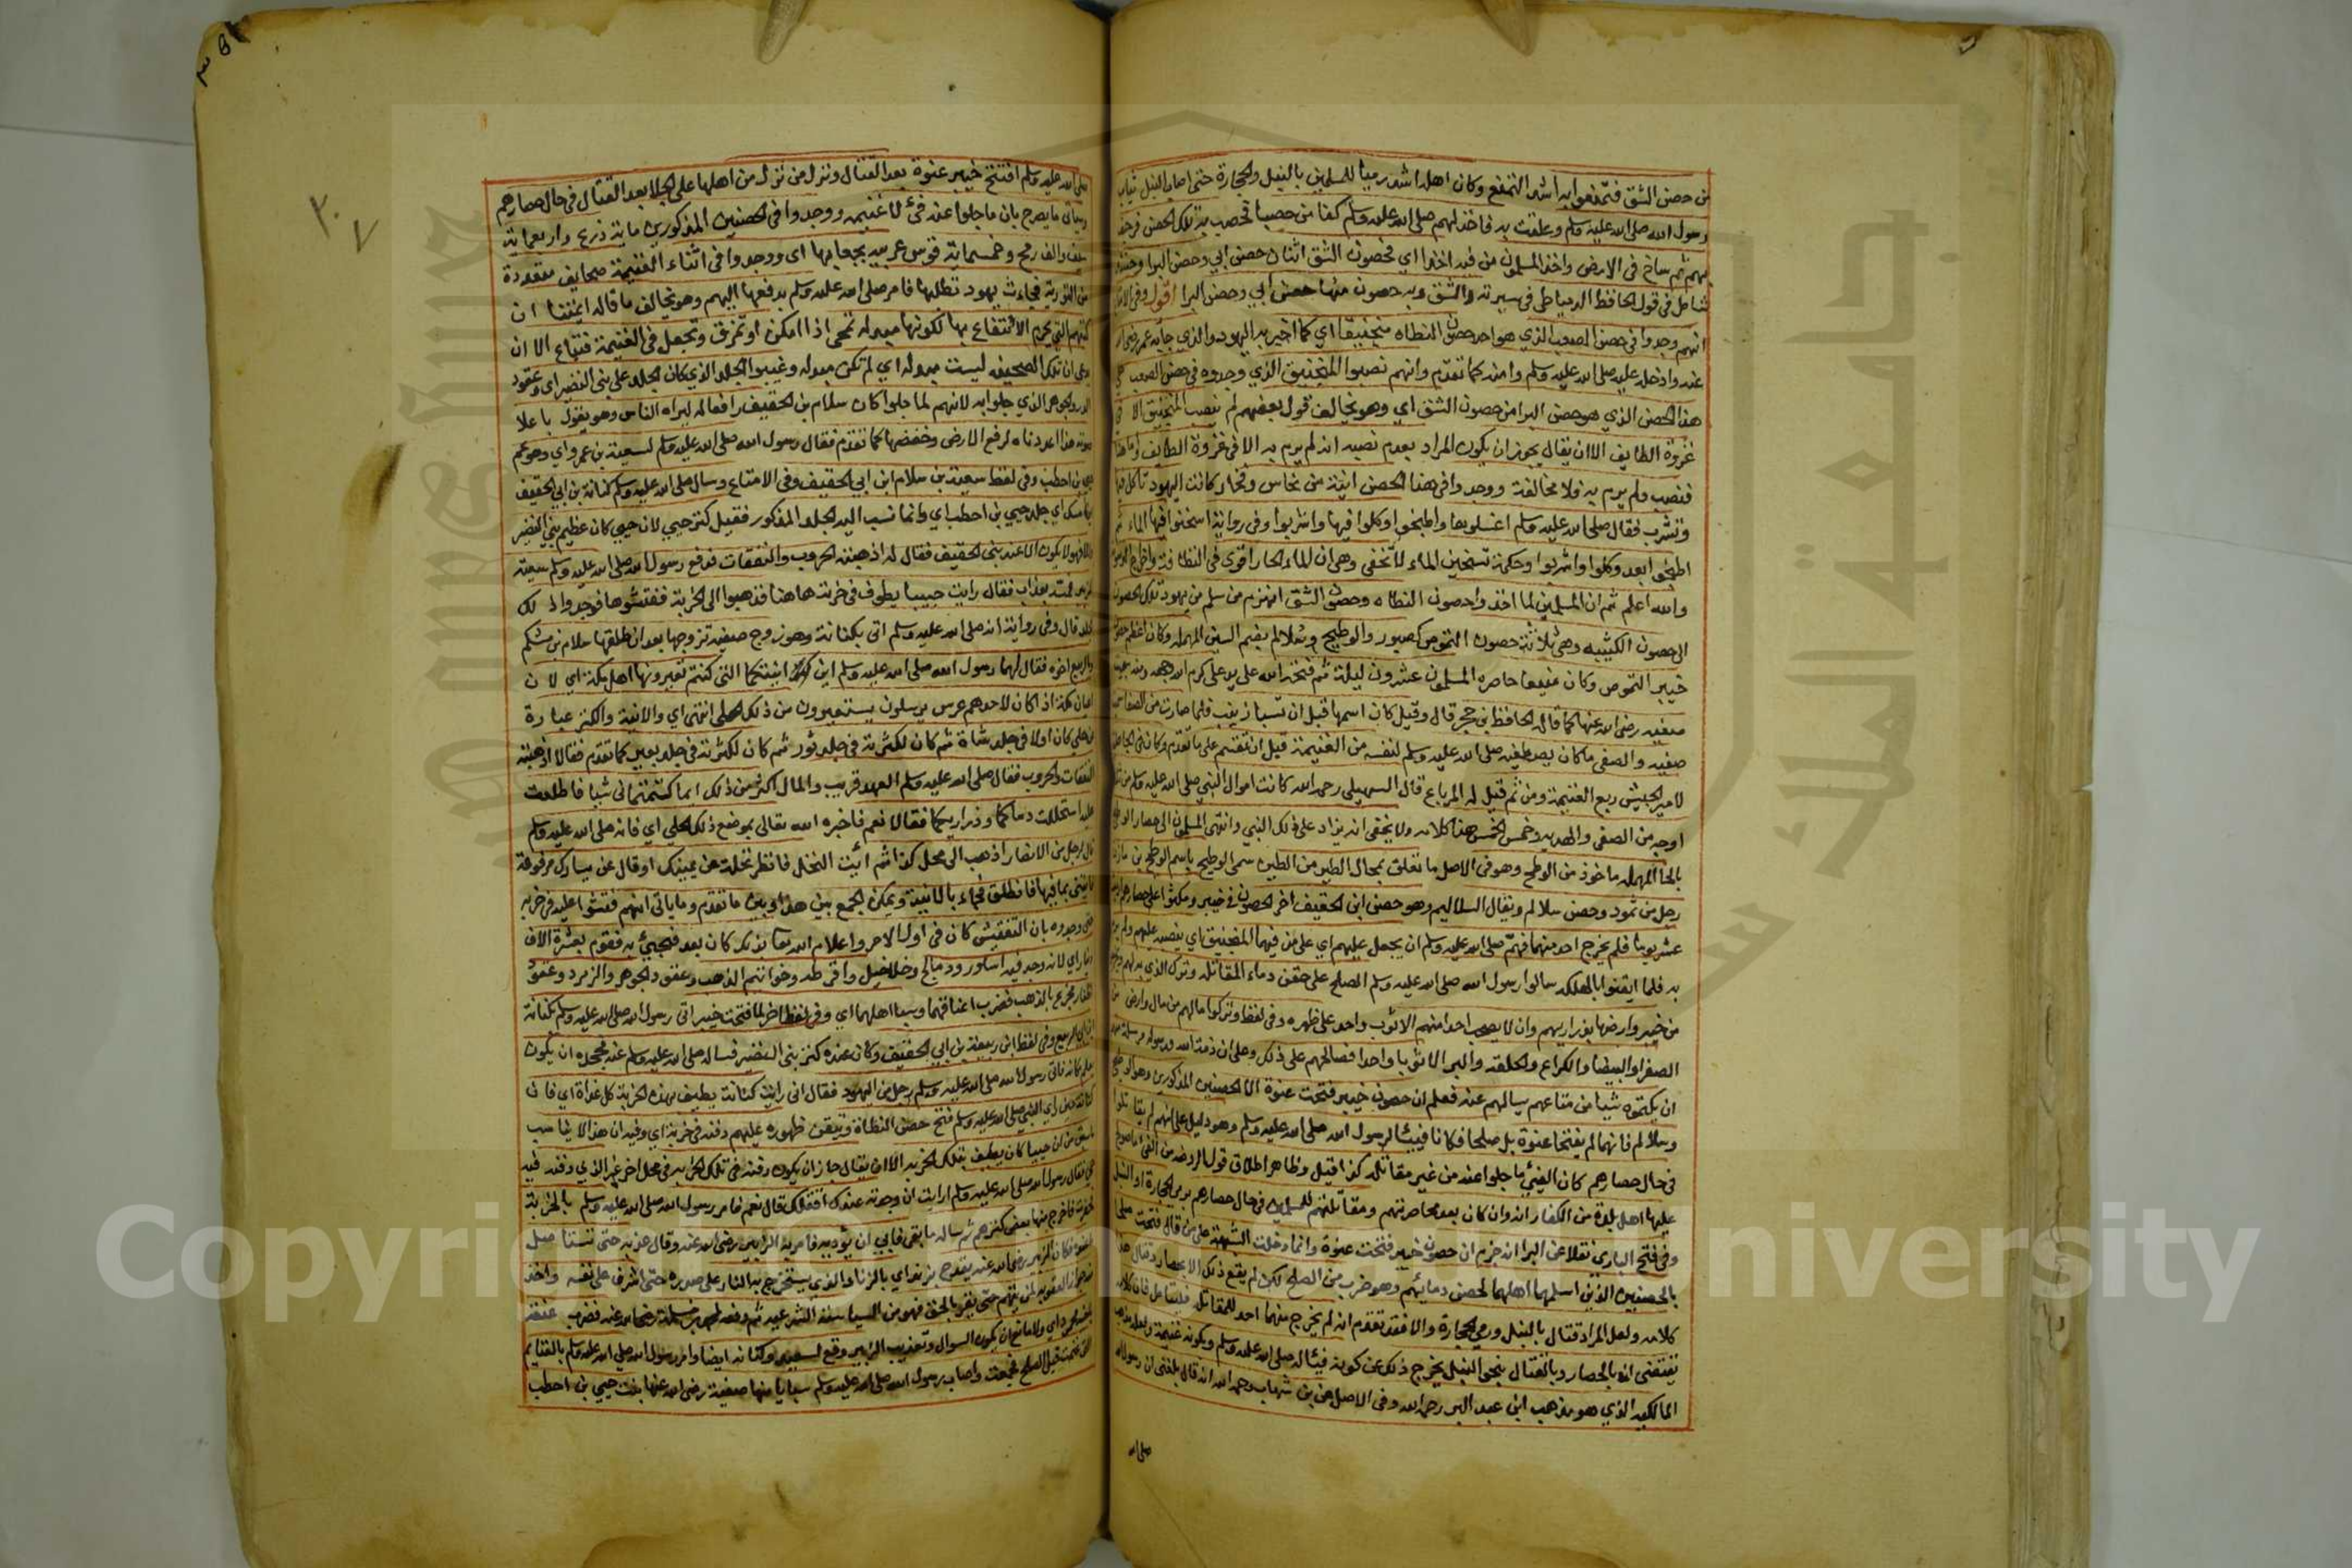 من حصن الشق فتمنعوا به اشد التمنع وكان اهله اشد رميا للمسلمين بالنبل والحجارة حتى اصاب النبل ثياب
رسول الله صلى الله عليه وسلم وعلقت به فاخذ لهم صلى الله عليه وسلم كفا من حصبا فحصب به ذلك الحصن فرجف
بهم ثم ساخ في الارض واخذ المسلمون من فيه اخذا اي فحصون الشق اثنان حصن ابي وحصن البرا وحينئذ
يتامل في قول الحافظ الدمياطي في سيرته والشق وبه حصون منها حصن ابي وحصن البرا اقول وفي الامتاع
انهم وجدوا في حصن الصعب الذي هو احد حصون النطاه منجنيقا اي كما اخبر به اليهودي الذي جابه عمر رضي الله
عنه وادخله عليه صلى الله عليه وسلم وامنه كما تقدم وانهم نصبوا المنجنيق الذي وجدوه في حصن الصعب على
هذا الحصن الذي هو حصن البرا من حصون الشق اي وهو يخالف قول بعضهم لم ينصب المنجنيق الا في
غزوة الطايف الا ان يقال يجوز ان يكون المراد بعدم نصبه انه لم يرم به الا في غزوة الطايف واما هنا
فنصب ولم يرم به فلا مخالفة ووجدوا في هذا الحصن انية من نحاس وفخار كانت اليهود تاكل فيها
وتشرب فقال صلى الله عليه وسلم اغسلوها واطبخوا وكلوا فيها واشربوا وفي رواية اسخنوا فيها الماء ثم
اطبخوا بعد وكلوا واشربوا وحكمة تسخين الماء لا تخفى وهي ان الماء الحار اقوى في النظافة واخراج الدسومة
والله اعلم ثم ان المسلمين لما اخذوا حصون النطاه وحصون الشق انهزم من سلم من يهود تلك الحصون
الى حصون الكتيبه وهي ثلاثة حصون القموص كصبور والوطيح وسلالم بضم السين المهمله وكان اعظم حصون
خيبر القموص وكان منيعا حاصره المسلمون عشرون ليلة ثم فتحه الله على يد علي كرم الله وجهه ومنه سبيت
صفيه رضي الله عنها كما قاله الحافظ ابن حجر قال وقيل كان اسمها قبل ان تسبا زينب فلما صارت من الصفي سميت
صفيه والصفي ما كان يصطفيه صلى الله عليه وسلم لنفسه من الغنيمة قبل ان تقسم على ما تقدم وكان في الجاهلية
لامير الجيش ربع الغنيمة ومن ثم قيل له المرباع قال السهيلي رحمه الله كانت اموال النبي صلى الله عليه وسلم من ثلاثة
اوجه من الصفي والهديه وخمس الخمس هذا كلامه ولا يخفى انه يزاد على ذلك الفي وانتهى المسلمون الى حصار الوطيح
بالحا المهمله ماخوذ من الوطح وهو في الاصل ما تعلق بمخالب الطير من الطين سمي الوطيح باسم الوطيح بن مازن
رجل من ثمود وحصن سلالم ويقال السلاليم وهو حصن ابن الحقيق اخر الحصون في خيبر ومكثوا على حصارهم اربعة
عشر يوما فلم يخرج احد منهما فهم صلى الله عليه وسلم ان يجعل عليهم اي على من فيهما المنجنيق اي ينصبه عليهم ولم يرم
به فلما ايقنوا بالهلكه سالوا رسول الله صلى الله عليه وسلم الصلح على حقن دماء المقاتله وترك الذي به لهم ويخرجون
من خيبر وارضها بذراريهم وان لا يصحب احد منهم الا ثوب واحد على ظهره وفي لفظ وتركوا مالهم من مال وارض من
الصفرا والبيضا والكراع والحلقه والبر الا ثوبا واحدا فصالحهم على ذلك وعلى ان ذمة الله ورسوله بريئة منهم
ان يكتموه شيا من متاعهم يسالهم عنه فعلم ان حصون خيبر فتحت عنوة الا الحصنين المذكورين وهو الوطيح
وسلالم فانهما لم يفتحا عنوة بل صلحا فكانا فيئا لرسول الله صلى الله عليه وسلم وهو دليل على انهم لم يقاتلوا
في حال حصارهم كان الفيئ ما جلوا عنه من غير مقاتله كذا قيل وظاهر اطلاق قول الروضه من الفئ ما صولح
عليها اهل بلدة من الكفار انه وان كان بعد محاصرتهم ومقاتلتهم للمسلمين في حال حصارهم برمي الحجارة او النبل
وفي فتح الباري نقلا عن البر انه جزم ان حصون خيبر فتحت عنوة وانما دخلت الشبهة على من قال فتحت صلحا
بالحصنين الذين اسلمهما اهلهما لحقن دمائهم وهو ضرب من الصلح لكن لم يقع ذلك الا بحصار وقتال هذا
كلامه ولعل المراد قتال بالنبل ورمي الحجارة والا فقد تقدم انه لم يخرج منهما احد للمقاتلة فليتامل فان كلامه
يقتضي انه بالحصار وبالقتال بنحو النبل يخرج ذلك عن كونه فيئا له صلى الله عليه وسلم ويكونه غنيمة ولعله مذهب
المالكيه الذي هو مذهب ابن عبد البر رحمه الله وفي الاصل عن بن شهاب رحمه الله انه قال بلغني ان رسول الله
صلى الله
٣٠٧
صلى الله عليه وسلم افتتح خيبر عنوة بعد القتال ونزل من نزل من اهلها على الجلا بعد القتال في حال حصارهم
وسياتي ما يصرح بان ما جلوا عنه فئ لا غنيمه ووجدوا في الحصنين المذكورين ماية درع واربعماية
سيف والف رمح وخمسماية قوس عربيه بجعابها اي ووجدوا في اثناء الغنيمة صحايف متعددة
من التوريه فجاءت يهود تطلبها فامر صلى الله عليه وسلم بدفعها اليهم وهو يخالف ما قاله ايمتنا ان
كتبهم التي يحرم الانتفاع بها لكونها مبدله تمحى اذا امكن او تمزق وتجعل في الغنيمة فتباع الا ان
يدعى ان تلك الصحيفه ليست مبدله اي لم تكن مبدله وغيبوا الجلد الذي كان الجلد على بني النضير اي وعقود
الدر والجوهر الذي جلوا به لانهم لما جلوا كان سلام بن الحقيق رافعا له ليراه الناس وهو يقول باعلا
صوته هذا اعددناه لرفع الارض وخفضها كما تقدم فقال رسول الله صلى الله عليه وسلم لسعية بن عمرو اي وهو عم
حيي بن احطب وفي لفظ سعية بن سلام ابن ابي الحقيق وفي الامتاع وسال صلى الله عليه وسلم كنانة بن ابي الحقيق
اين مسك اي جلد حيي بن احطب اي وانما نسب اليه الجلد المذكور فقيل كنز حيي لان حيي كان عظيم بني النضير
والا فهو لا يكون الا عند بني الحقيق فقال له اذهبته الحروب والنفقات فدفع رسول الله صلى الله عليه وسلم سعية
للزبير فمسه بعذاب فقال رايت حييا يطوف في خربة هاهنا فذهبوا الى الخربة ففتشوها فوجدوا ذلك
الجلد قال وفي رواية انه صلى الله عليه وسلم اتى بكنانة وهو زوج صفيه تزوجها بعد ان طلقها سلام بن مشكم
والربيع اخوه فقال لهما رسول الله صلى الله عليه وسلم اين انيتكما التي كنتم تعيرونها اهل مكة اي لان
اعيان مكة اذا كان لاحدهم عرس يرسلون يستعيرون من ذلك الحلي انتهى اي والانية والكنز عبارة
عن حلي كان اولا في جلد شاة ثم كان لكثرته في جلد ثور ثم كان لكثرته في جلد بعير كما تقدم فقالا اذهبته
النفقات والحروب فقال صلى الله عليه وسلم العهد قريب والمال اكثر من ذلك انكما كتمتماني شيا فاطلعت
عليه استحللت دماكما وذراريكما فقالا نعم فاخبره الله تعالى بموضع ذلك الحلي اي فانه صلى الله عليه وسلم
قال لرجل من الانصار اذهب الى محل كذا ثم ائت النخل فانظر نخلة عن يمينك او قال عن يسارك مرفوعة
فاتيني بما فيها فانطلق فجاء بالانية ويمكن الجمع بين هذا وبين ما تقدم وما ياتي انهم فتشوا عليه في خربه
حتى وجدوه بان التفتيش كان في اول الامر واعلام الله تعا بذلك كان بعد فجيئ به فقوم بعشرة الاف
دينار اي لانه وجد فيه اساور ودمالج وخلاخيل واقرطه وخواتيم الذهب وعقود الجوهر والزمرد وعقود
اظفار مجزع بالذهب فضرب اعناقهما وسبا اهلهما اي وفي لفظ اخر لما فتحت خيبر اتى رسول الله صلى الله عليه وسلم بكنانة
ابن الربيع وفي لفظ ابن ربيعة بن ابي الحقيق وكان عنده كنز بني النضير فساله صلى الله عليه وسلم عنه فجحده ان يكون
يعلم مكانه فاتى رسول الله صلى الله عليه وسلم رجل من اليهود فقال اني رايت كنانة يطيف بهذه الخربة كل غداة اي فان
كنانة حين راى النبي صلى الله عليه وسلم فتح حصن النطاة وتيقن ظهوره عليهم دفنه في خربة اي وفيه ان هذا لا يناسب
ما سبق من ان حييا كان يطيف بتلك الخربه الا ان يقال جاز ان يكون دفنه في تلك الخربه في محل اخر غير الذي دفنه فيه
حيي فقال رسول الله صلى الله عليه وسلم ارايت ان وجدته عندك اقتلك قال نعم فامر رسول الله صلى الله عليه وسلم بالخربة
فحفرت فاخرج منها بعض كنزهم ثم ساله ما بقي فابى ان يؤديه فامر به الزبير رضي الله عنه وقال عذبه حتى تستاصل
ما عنده فكان الزبير رضي الله عنه يقدح بزند اي بالزناد الذي يستخرج به النار على صدره حتى اشرف على نفسه واخذ
منه جواز العقوبه لمن يتهم حتى يقر بالحق فهو من السياسة الشرعيه ثم دفعه لمحمد بن مسلمة رضي الله عنه فضرب عنقه
باخيه محمود اي ولا مانع ان يكون السوال وتعذيب الزبير وقع لسعيه وكنانه ايضا وامر رسول الله صلى الله عليه وسلم بالغنايم
التي غنمت قبل الصلح فجمعت واصاب رسول الله صلى الله عليه وسلم سبايا منها صفية رضي الله عنها بنت حيي بن احطب
Copyright © King Saud University
جامعة الملك سعود